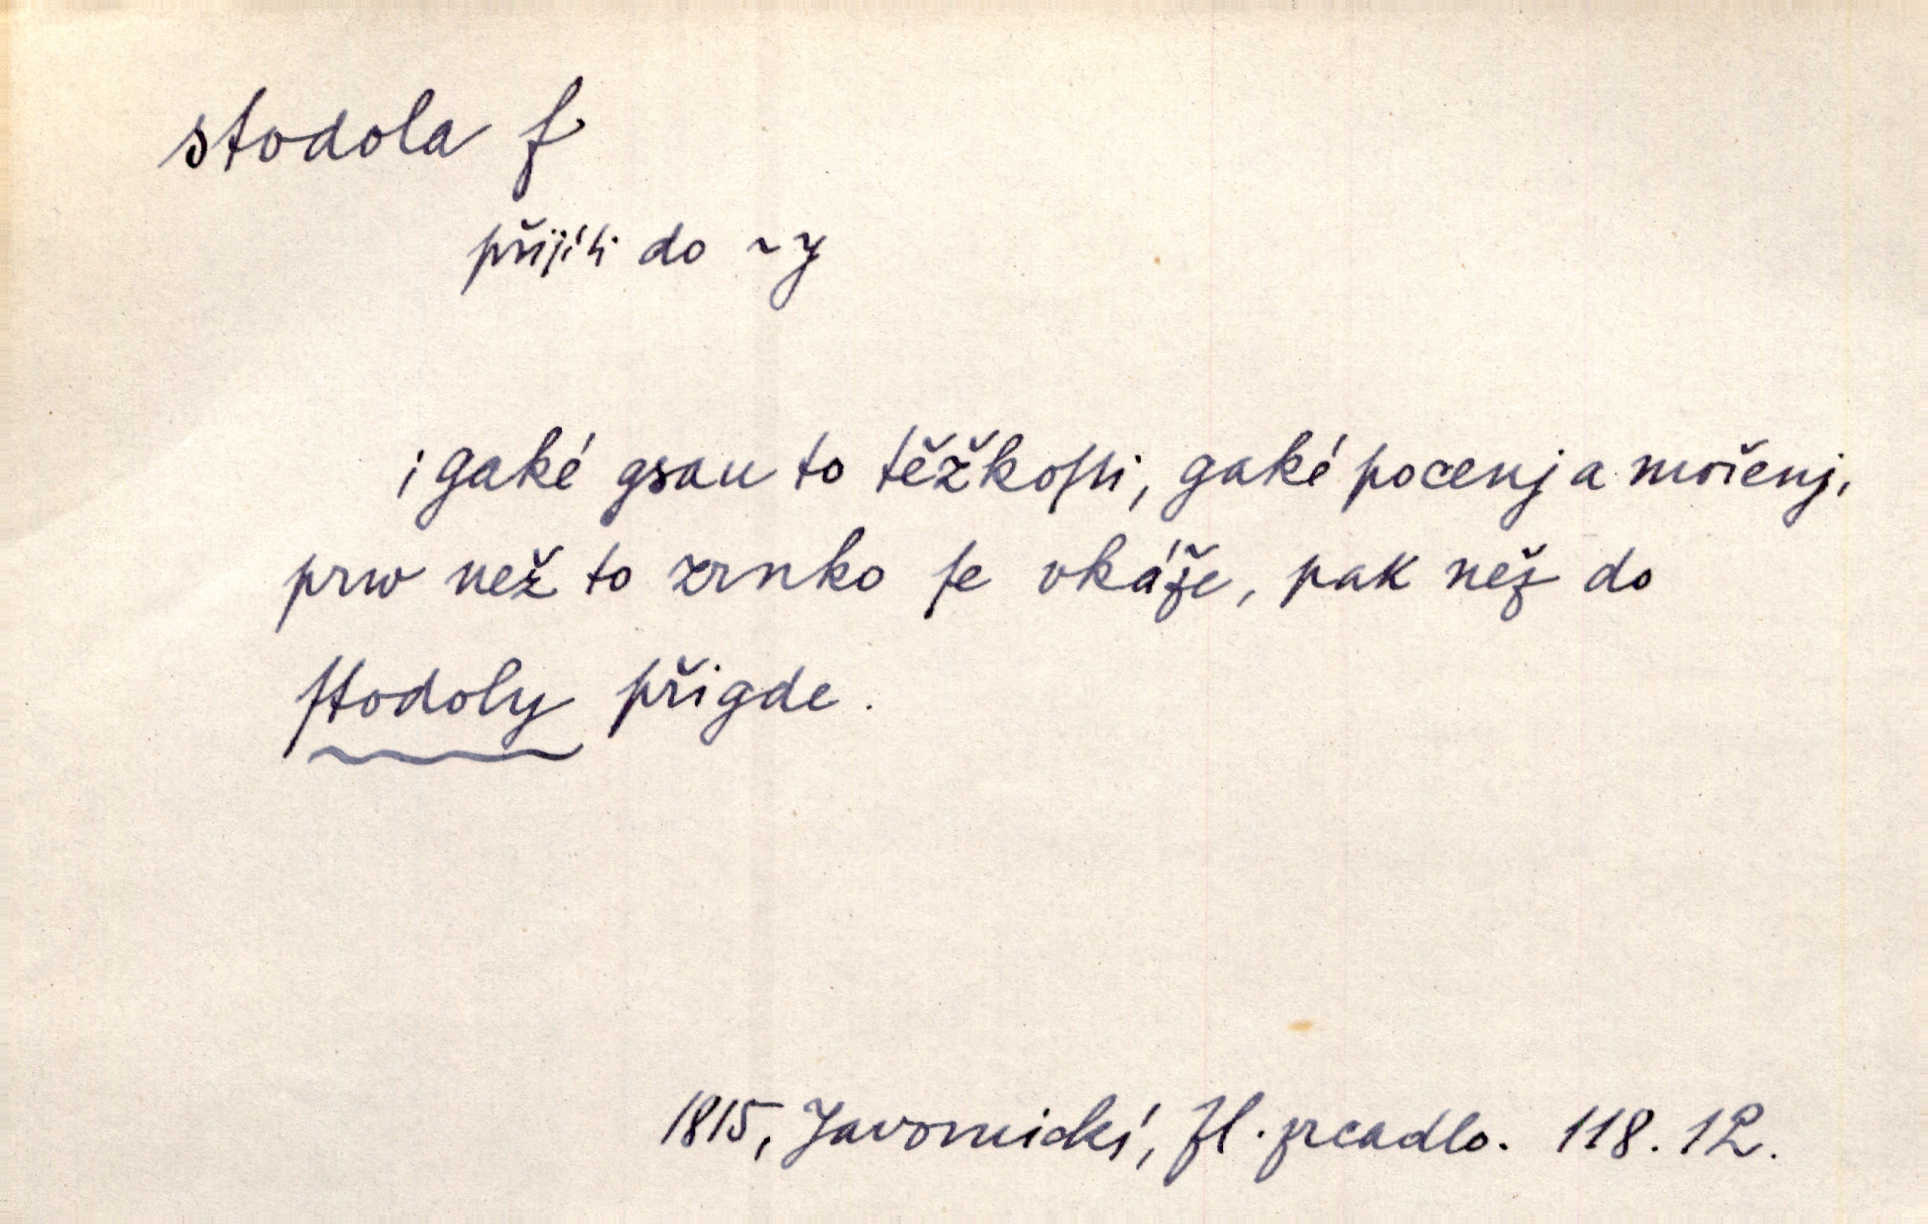 stodola f
přijíti do ~y
i gaké gsau to těžkoſti, gaké pocenj a mořenj,
prw než to zrnko ſe vkáže, pak než do
ſtodoly přigde.
1815, Javornický, Zl. zrcadlo. 118. 12.